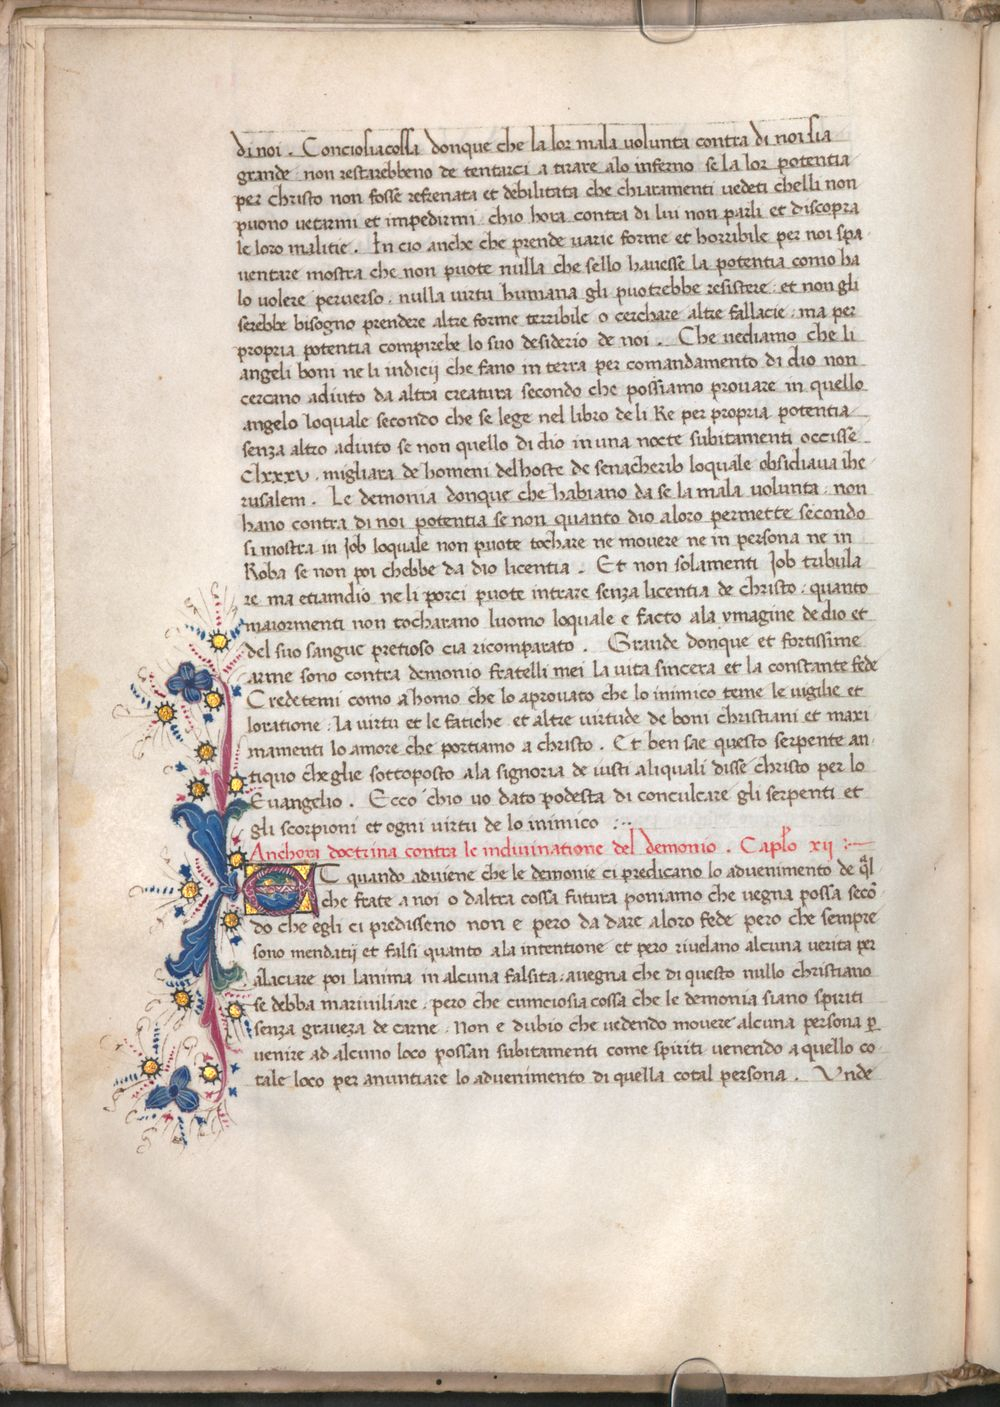 di noi . Conciosiacossa donque che la lor mala volunta contra di noi sia
grande · non restarebbeno de tentarci a tirare alo inferno se la lor potentia
per christo non fosse refrenata et debilitata che chiaramenti vedeti chelli non
puono vetarmi et impedirmi · chio hora contra di lui non parli et discopra
le loro malitie . In cio anche che prende varie forme et horribile per noi spa
ventare mostra che non puote nulla che sello havesse la potentia como ha
lo volere perverso · nulla virtu humana gli puotrebbe resistere · et non gli
serebbe bisogno prendere altre forme terribile o cerchare altre fallacie · ma per
propria potentia compirebe lo suo desiderio de noi . Che vediamo che li
angeli boni ne li iudicij che fano in terra per comandamento di dio non
cercano adiuto da altra creatura secondo che possiamo provare in quello
angelo loquale secondo che se lege nel libro de li Re per propria potentia
senza altro adiuto se non quello di dio in una nocte subitamenti occisse
Clxxxv · migliara de homeni del hoste de senacherib loquale obsidiava ihe
rusalem . Le demonia donque che habiano da se la mala volunta · non
hano contra di noi potentia se non quanto dio aloro permette secondo
si mostra in Job loquale non puote tochare ne movere ne in persona ne in
Roba se non poi chebbe da dio licentia . Et non solamenti Job tribula
re ma etiamdio ne li porci puote intrare senza licentia de christo · quanto
maiormenti non tocharano luomo loquale e facto ala ymagine de dio et
del suo sangue pretioso cia ricomparato . Grande donque et fortissime
arme sono contra demonio fratelli mei la vita sincera et la constante fede
Credetemi como a homo che lo aprovato che lo inimico teme le vigilie et
loratione · la virtu et le fatiche et altre virtude de boni christiani et maxi
mamenti lo amore che portiamo a christo . Et ben sae questo serpente an
tiquo che glie sottoposto ala signoria de iusti aliquali disse christo per lo
Evangelio . Ecco chio vo dato podesta di conculcare gli serpenti et
gli scorpioni et ogni virtu de lo inimico :··
Anchora doctrina contra le indivinatione del demonio . Caplo xij :—
ET quando adviene che le demonie ci predicano lo advenimento de q̃l
che frate a noi o daltra cossa futura poniamo che vegna possa secõ
do che egli ci predisseno non e pero da dare aloro fede pero che sempre
sono mendatij et falsi quanto ala intentione et pero rivelano alcuna verita per
alaciare poi lanima in alcuna falsita · avegna che di questo nullo christiano
se debba mariviliare · pero che cumciosia cossa che le demonia siano spiriti
senza graveza de carne · Non e dubio che vedendo movere alcuna persona p̱
venire ad alcuno loco possan subitamenti come spiriti venendo a quello co
tale loco per anuntiare lo advenimento di quella cotal persona . Unde